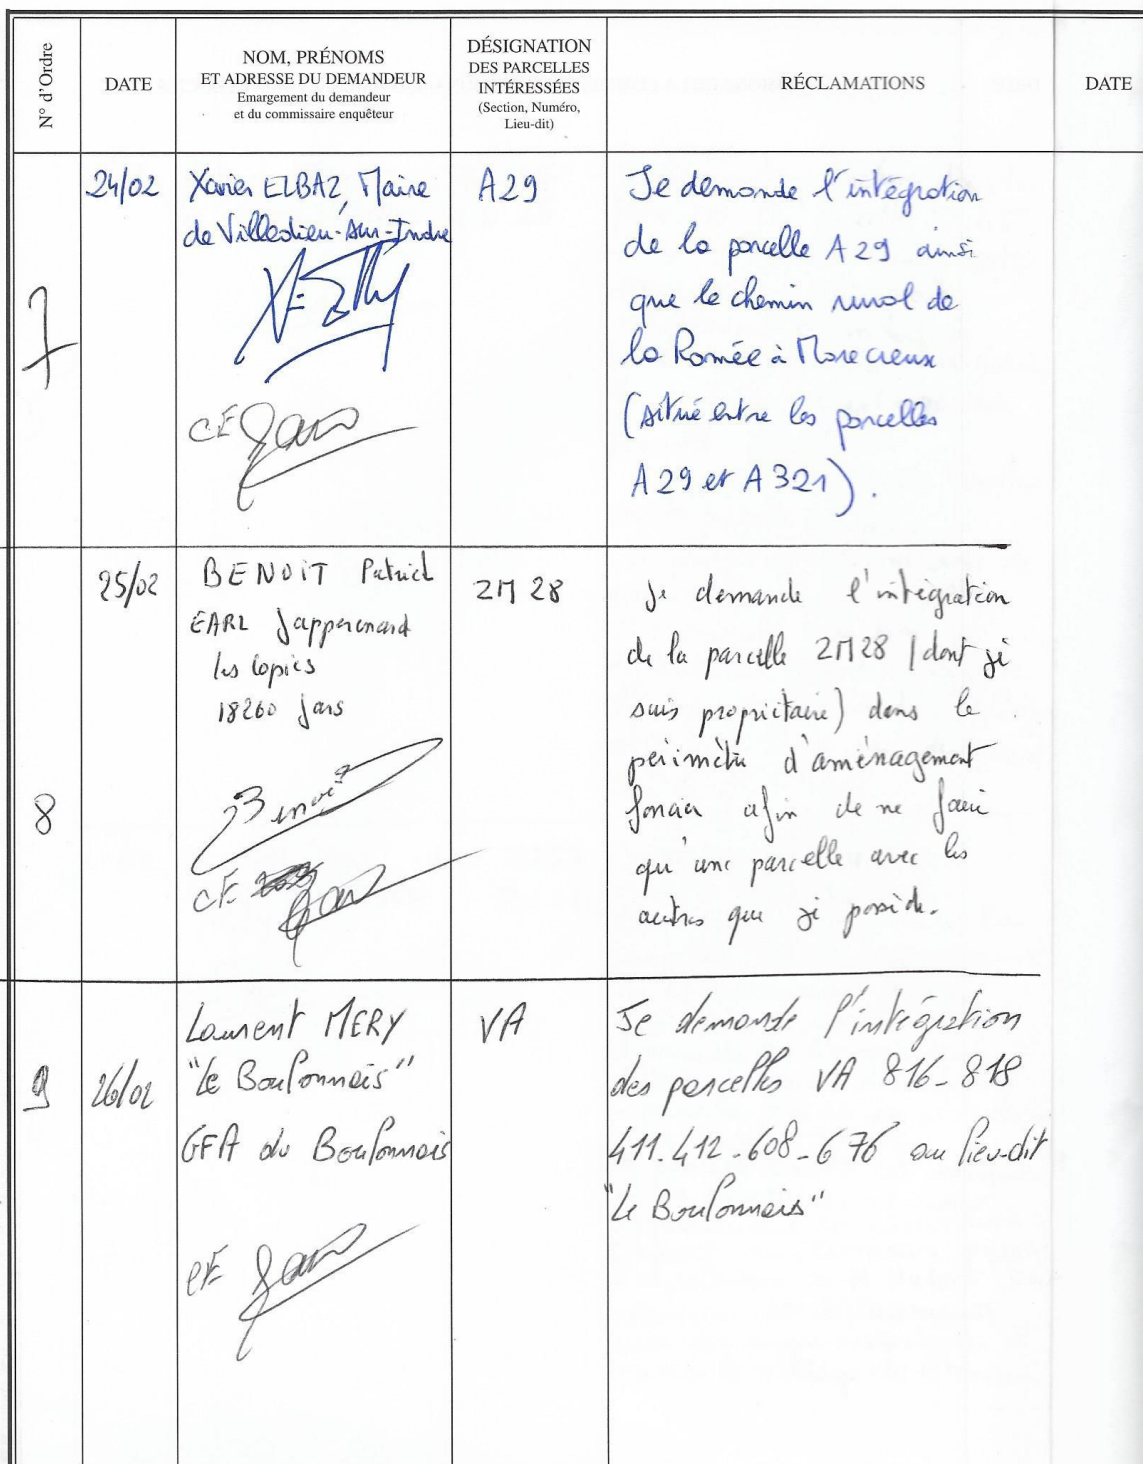 N° d'Ordre
DATE
NOM, PRÉNOMS
ET ADRESSE DU DEMANDEUR
Emargement du demandeur
et du commissaire enquêteur
DÉSIGNATION
DES PARCELLES
INTÉRESSÉES
(Section, Numéro,
Lieu-dit)
RÉCLAMATIONS
DATE
7
24/02
Xavier ELBAZ, Maire
de Villedieu-sur-Indre
A29
Je demande l'intégration
de la parcelle A 29 ainsi
que le chemin rural de
la Romée à Morecreux
(situé entre les parcelles
A 29 et A 321).
CE
8
25/02
BENOIT Patrick
EARL Japperenard
les Copies
18260 Jars
Benoit
CE
ZM 28
Je demande l'intégration
de la parcelle ZM28 (dont je
suis propriétaire) dans le
périmètre d'aménagement
foncier afin de ne faire
qu'une parcelle avec les
autres que je possède.
9
26/02
Laurent MERY
"Le Boulonnais"
GFA du Boulonnais
CE
VA
Je demande l'intégration
des parcelles VA 816-818
411.412-608-676 au lieu-dit
"Le Boulonnais"